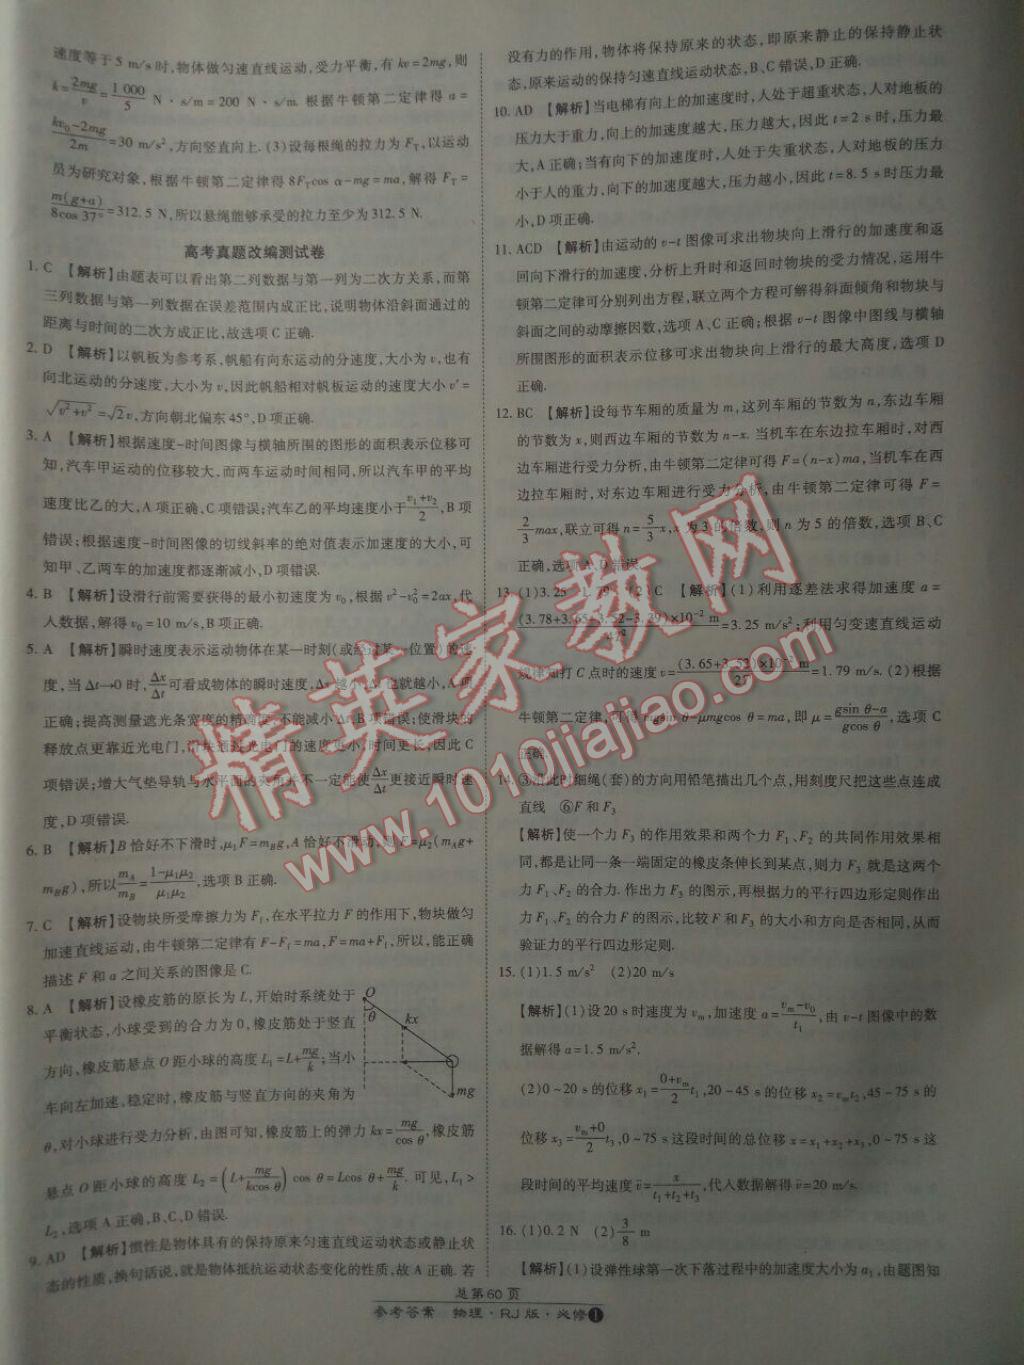 速度等于 5 m/s 时,物体做匀速直线运动,受力平衡,有 kv=2mg,则
k=2mg/v=1 000/5 N·s/m=200 N·s/m. 根据牛顿第二定律得 a=
(kv₀-2mg)/2m=30 m/s²,方向竖直向上. (3)设每根绳的拉力为 F_T,以运动
员为研究对象,根据牛顿第二定律得 8F_Tcos α-mg=ma,解得 F_T=
m(g+a)/8cos 37°=312.5 N,所以悬绳能够承受的拉力至少为 312.5 N.
高考真题改编测试卷
1. C 【解析】由题表可以看出第二列数据与第一列为二次方关系,而第
三列数据与第一列数据在误差范围内成正比,说明物体沿斜面通过的
距离与时间的二次方成正比,故选项 C 正确.
2. D 【解析】以帆板为参考系,帆船有向东运动的分速度,大小为 v,也有
向北运动的分速度,大小为 v,因此帆船相对帆板运动的速度大小 v′=
√(v²+v²)=√2v,方向朝北偏东 45°,D 项正确.
3. A 【解析】根据速度-时间图像与横轴所围的图形的面积表示位移可
知,汽车甲运动的位移较大,而两车运动时间相同,所以汽车甲的平均
速度比乙的大,A 项正确、C 项错误;汽车乙的平均速度小于(v₁+v₂)/2,B 项
错误;根据速度-时间图像的切线斜率的绝对值表示加速度的大小,可
知甲、乙两车的加速度都逐渐减小,D 项错误.
4. B 【解析】设滑行前需要获得的最小初速度为 v₀,根据 v²-v₀²=2ax,代
入数据,解得 v₀=10 m/s,B 项正确.
5. A 【解析】瞬时速度表示运动物体在某一时刻(或经过某一位置)的速
度,当 Δt→0 时,Δx/Δt可看成物体的瞬时速度,Δx 越小,Δt 也就越小,A 项
正确;提高测量遮光条宽度的精确度,不能减小 Δt,B 项错误;使滑块的
释放点更靠近光电门,滑块通过光电门的速度更小,时间更长,因此 C
项错误;增大气垫导轨与水平面的夹角并不一定能使Δx/Δt更接近瞬时速
度,D 项错误.
6. B 【解析】B 恰好不下滑时,μ₁F=m_Bg,A 恰好不滑动,则 F=μ₂(m_Ag+
m_Bg),所以m_A/m_B=(1-μ₁μ₂)/μ₁μ₂,选项 B 正确.
7. C 【解析】设物块所受摩擦力为 F_f,在水平拉力 F 的作用下,物块做匀
加速直线运动,由牛顿第二定律有 F-F_f=ma,F=ma+F_f,所以,能正确
描述 F 和 a 之间关系的图像是 C.
8. A 【解析】设橡皮筋的原长为 L,开始时系统处于
平衡状态,小球受到的合力为 0,橡皮筋处于竖直
方向,橡皮筋悬点 O 距小球的高度 L₁=L+mg/k;当小
车向左加速,稳定时,橡皮筋与竖直方向的夹角为
θ,对小球进行受力分析,由图可知,橡皮筋上的弹力 kx=mg/cos θ,橡皮筋
悬点 O 距小球的高度 L₂=(L+mg/kcos θ)cos θ=Lcos θ+mg/k. 可见,L₁>
L₂,选项 A 正确,B、C、D 错误.
O
θ
kx
mg
9. AD 【解析】惯性是物体具有的保持原来匀速直线运动状态或静止状
态的性质,换句话说,就是物体抵抗运动状态变化的性质,故 A 正确. 若
没有力的作用,物体将保持原来的状态,即原来静止的保持静止状
态,原来运动的保持匀速直线运动状态,B、C 错误,D 正确.
10. AD 【解析】当电梯有向上的加速度时,人处于超重状态,人对地板的
压力大于重力,向上的加速度越大,压力越大,因此 t=2 s 时,压力最
大,A 正确;当有向下的加速度时,人处于失重状态,人对地板的压力
小于人的重力,向下的加速度越大,压力越小,因此 t=8.5 s 时压力最
小,D 项正确.
11. ACD 【解析】由运动的 v-t 图像可求出物块向上滑行的加速度和返
回向下滑行的加速度,分析上升时和返回时物块的受力情况,运用牛
顿第二定律可分别列出方程,联立两个方程可解得斜面倾角和物块与
斜面之间的动摩擦因数,选项 A、C 正确;根据 v-t 图像中图线与横轴
所围图形的面积表示位移可求出物块向上滑行的最大高度,选项 D
正确.
12. BC 【解析】设每节车厢的质量为 m,这列车厢的节数为 n,东边车厢
的节数为 x,则西边车厢的节数为 n-x. 当机车在东边拉车厢时,对西
边车厢进行受力分析,由牛顿第二定律可得 F=(n-x)ma,当机车在西
边拉车厢时,对东边车厢进行受力分析,由牛顿第二定律可得 F=
2/3max,联立可得 n=5/3x,x 为 3 的倍数,则 n 为 5 的倍数,选项 B、C
正确,选项 A、D 错误.
13. (1)3.25 1.79 (2)C 【解析】(1)利用逐差法求得加速度 a=
(3.78+3.65-3.52-3.39)×10⁻² m/4T²=3.25 m/s²;利用匀变速直线运动
规律知打 C 点时的速度 v=(3.65+3.52)×10⁻² m/2T=1.79 m/s. (2)根据
牛顿第二定律,可得 mgsin θ-μmgcos θ=ma,即 μ=(gsin θ-a)/gcos θ,选项 C
正确.
14. ③沿此时细绳(套)的方向用铅笔描出几个点,用刻度尺把这些点连成
直线 ⑥F 和 F₃
【解析】使一个力 F₃ 的作用效果和两个力 F₁、F₂ 的共同作用效果相
同,都是让同一条一端固定的橡皮条伸长到某点,则力 F₃ 就是这两个
力 F₁、F₂ 的合力. 作出力 F₃ 的图示,再根据力的平行四边形定则作出
力 F₁、F₂ 的合力 F 的图示,比较 F 和 F₃ 的大小和方向是否相同,从而
验证力的平行四边形定则.
15. (1)1.5 m/s² (2)20 m/s
【解析】(1)设 20 s 时速度为 vₘ,加速度 a=(vₘ-v₀)/t₁,由 v-t 图像中的数
据解得 a=1.5 m/s².
(2)0~20 s 的位移 x₁=(0+vₘ)/2 t₁,20~45 s 的位移 x₂=vₘt₂,45~75 s 的
位移 x₃=(vₘ+0)/2 t₃,0~75 s 这段时间的总位移 x=x₁+x₂+x₃,0~75 s 这
段时间的平均速度 v̄=x/(t₁+t₂+t₃),代入数据解得 v̄=20 m/s.
16. (1)0.2 N (2)3/8 m
【解析】(1)设弹性球第一次下落过程中的加速度大小为 a₁,由题图知
总第 60 页
参考答案 物理·RJ 版·必修 1
精英家教网
www.1010jiajiao.com